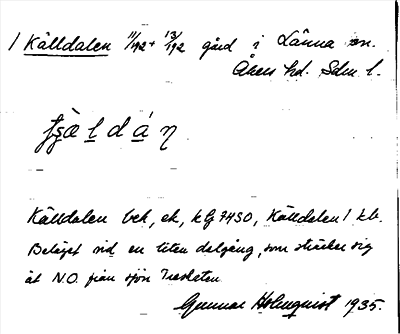 1 Källdalen 11/192 + 13/192 gård i Länna sn.
Åkers hd. Sdm l.
Källdalen bek, ek, kbg 7450, Källdalen 1 kb.
Beläget vid en liten dalgång, som sträcker sig
åt N.O. från sjön
Gunnar Holmquist 1935.